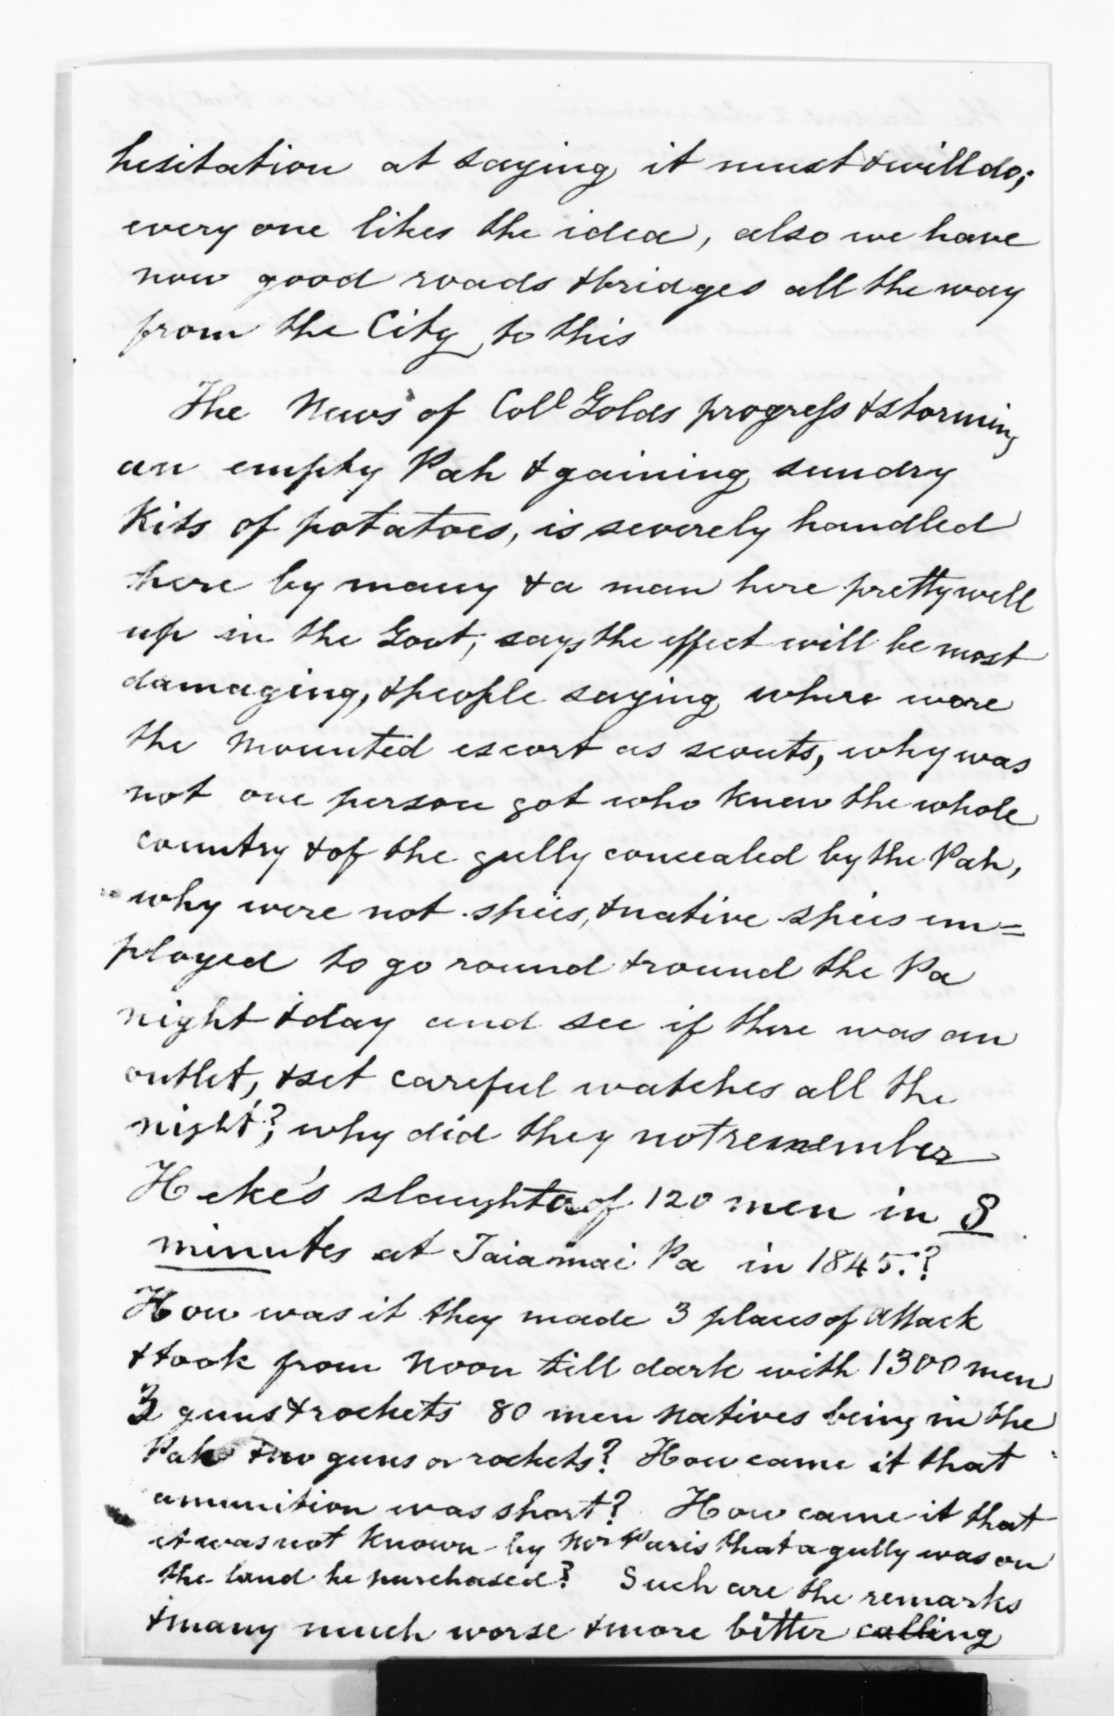 hesitation at saying it must & will do;
every one likes the idea, also we have
now good roads & bridges all the way
from the City to this
The News of Coll Golds progress & storming
an empty Pah & gaining sundry
Kits of potatoes, is severely handled
here by many & a man here pretty well
up in the Govt, says the effect will be most
damaging, & people saying where were
the mounted escort as scouts, why was
not one person got who knew the whole
country & of the gully concealed by the Pah,
why were not spies, & native spies em=
ployed to go round & round the Pa
night & day and see if there was an
outlet, & set careful watches all the
night?, why did they not remember
Heke's slaughter of 120 men in 8
minutes at Taiamai Pa in 1845.?
How was it they made 3 places of attack
& took from noon till dark with 1300 men
3 guns & rockets 80 men natives being in the
Pah & no guns or rockets? How came it that
amunition was short? How came it that
it was not known by Mr Paris that a gully was on
the land he purchased? Such are the remarks
& many much worse & more bitter calling